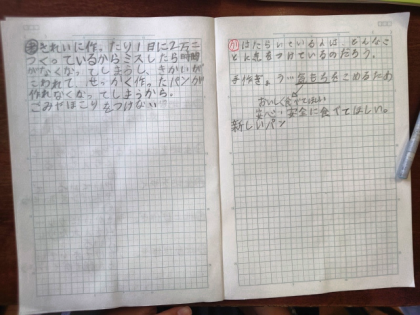 きれいに作ったり1日に2万こ
つくっているからミスしたら時間
がなくなってしまうし、きかいが
こわれて、せっかく作ったパンが
作れなくなってしまうから。
ごみやほこりをつけない
はたらいている人は、どんなこ
とに気をつけているのだろう。
手作ぎょう…気もちをこめるため
おいしく食べてほしい
安心・安全に食べてほしい。
新しいパン